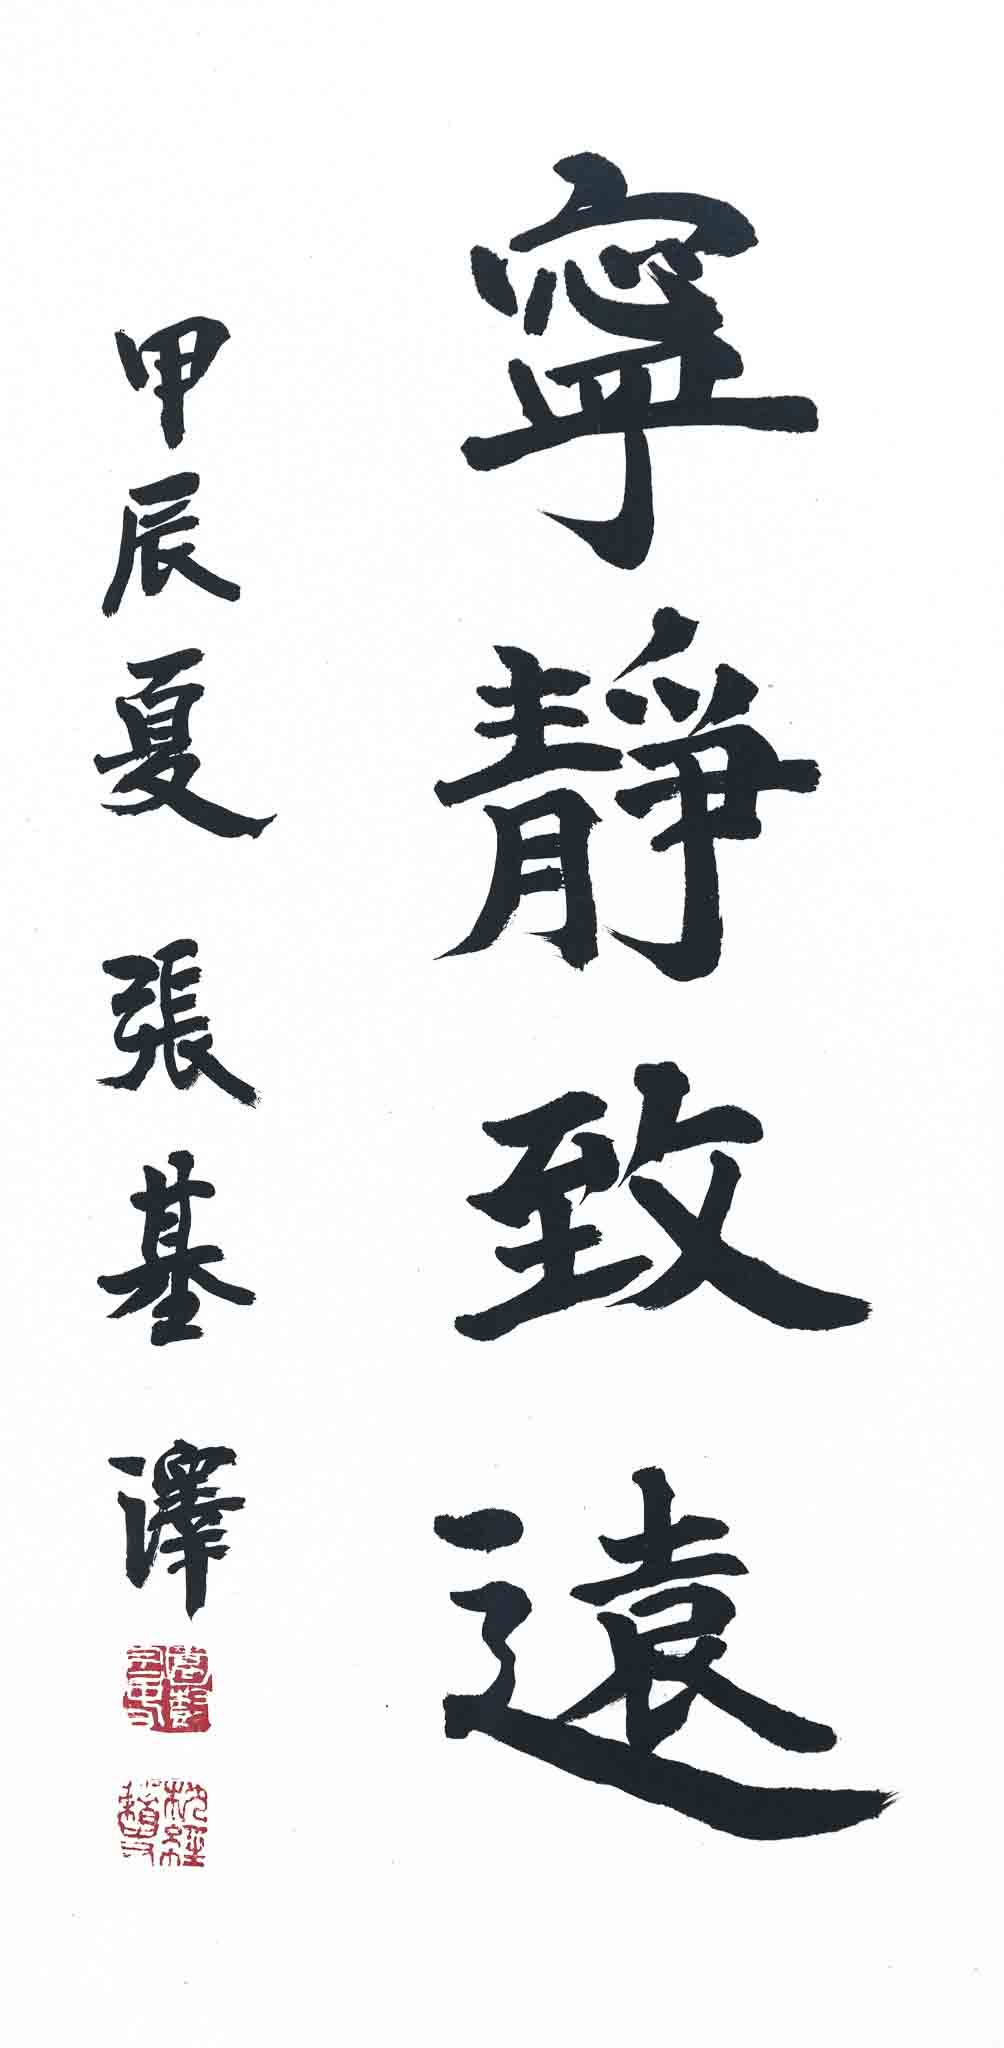 寧靜致遠
甲辰夏 張基澤